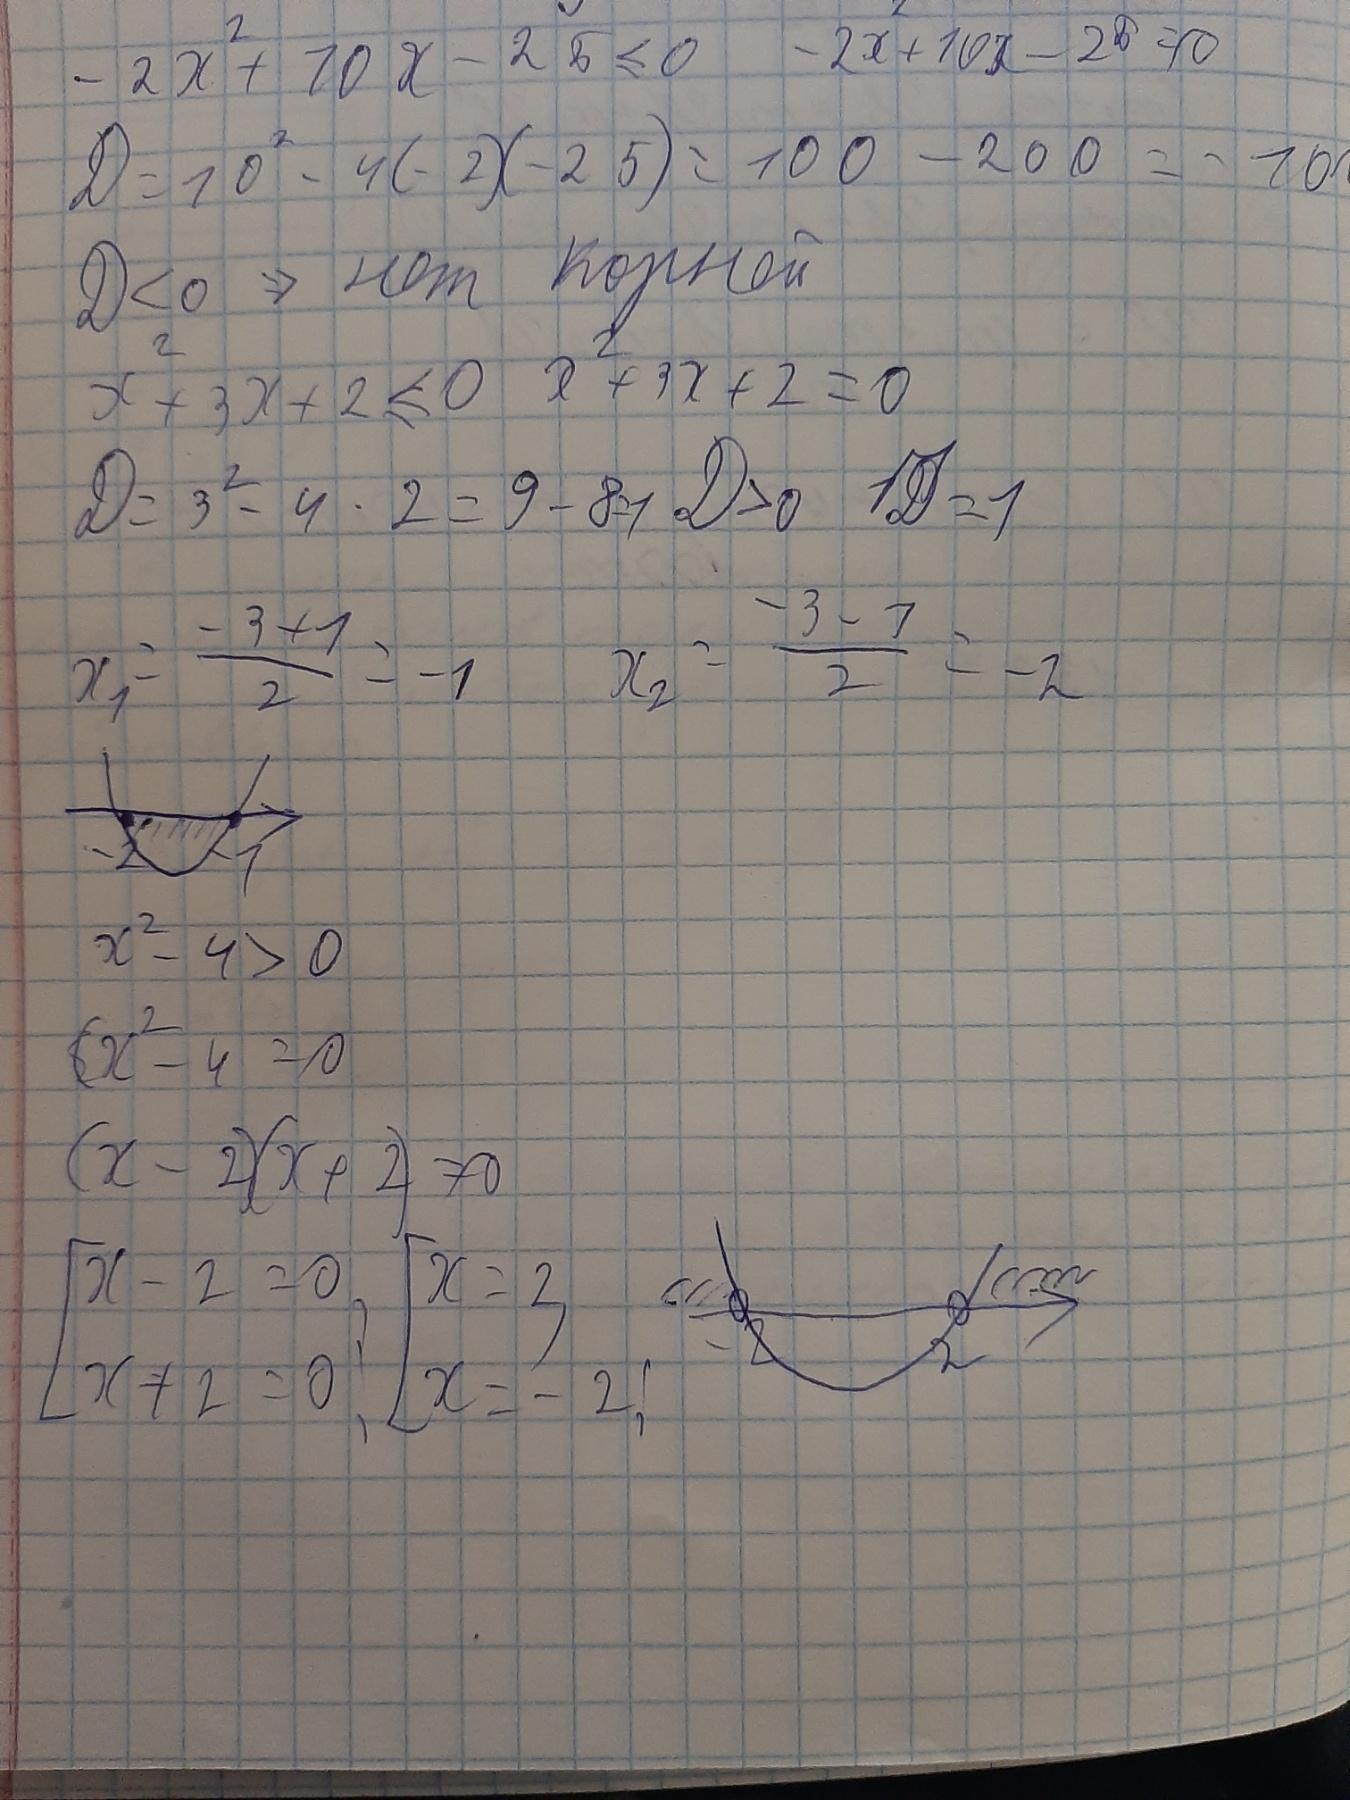 -2x²+10x-25≤0 -2x²+10x-25=0
D=10²-4(-2)(-25)=100-200=-100
D<0 ⇒ нет корней
x²+3x+2≤0 x²+3x+2=0
D=3²-4·2=9-8=1 D>0 √D=1
x₁=(-3+1)/2=-1 x₂=(-3-1)/2=-2
-2 -1
x²-4>0
x²-4=0
(x-2)(x+2)=0
[x-2=0, [x=2,
-2 2
x+2=0; x=-2;